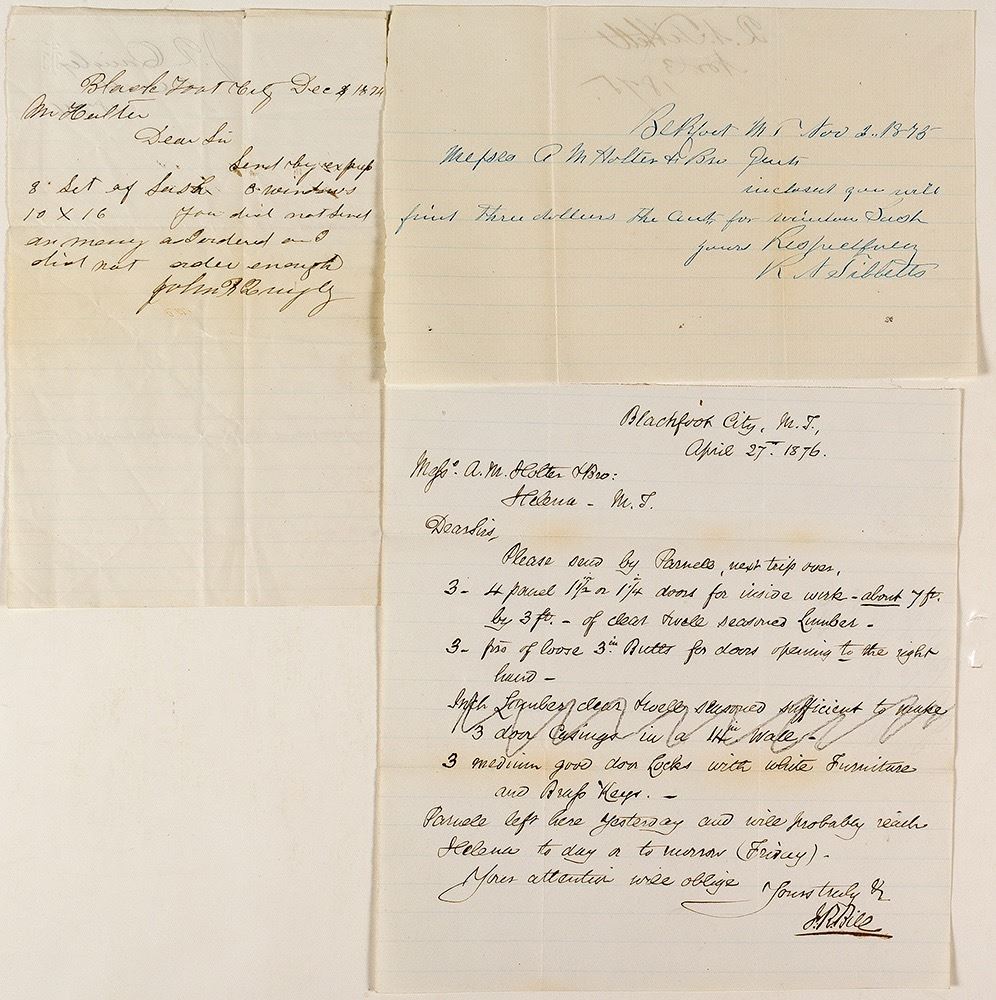 Black Foot City Dec 1874
Mr Holter
Dear Sir
Send by express
8 Set of Sash 3 windows
10 X 16 You did not Send
as many as I ordered and I
did not order enough
John R Quigly
R. N. Tibbetts
Nov 3
1875
Bl Kfoot M T Nov 3. 1875
Messrs A M Holter & Bro Gents
inclosed you will
find three dollers the amt, for window Sash
yours Respectfuly
R N Tibbetts
Blackfoot City, M. T.,
April 27th. 1876.
Messrs. A. M. Holter & Bro:
Helena - M. T.
Dear Sirs,
Please send by Parnell, next trip over,
3 - 4 panel 1 1/2 in or 1 1/4 in doors for inside work - about 7 ft.
by 3 ft. - of clear & well seasoned Lumber -
3 - prs of loose 3 in Butts for doors opening to the right
hand -
Inch Lumber clear & well seasoned sufficient to make
3 door Casings in a 14 in wall -
3 medium good door Locks with white Furniture
and Brass Keys. -
Parnell left here yesterday and will probably reach
Helena to day or to morrow (Friday) -
Your attention will oblige Yours truly &c
J. R. Bill